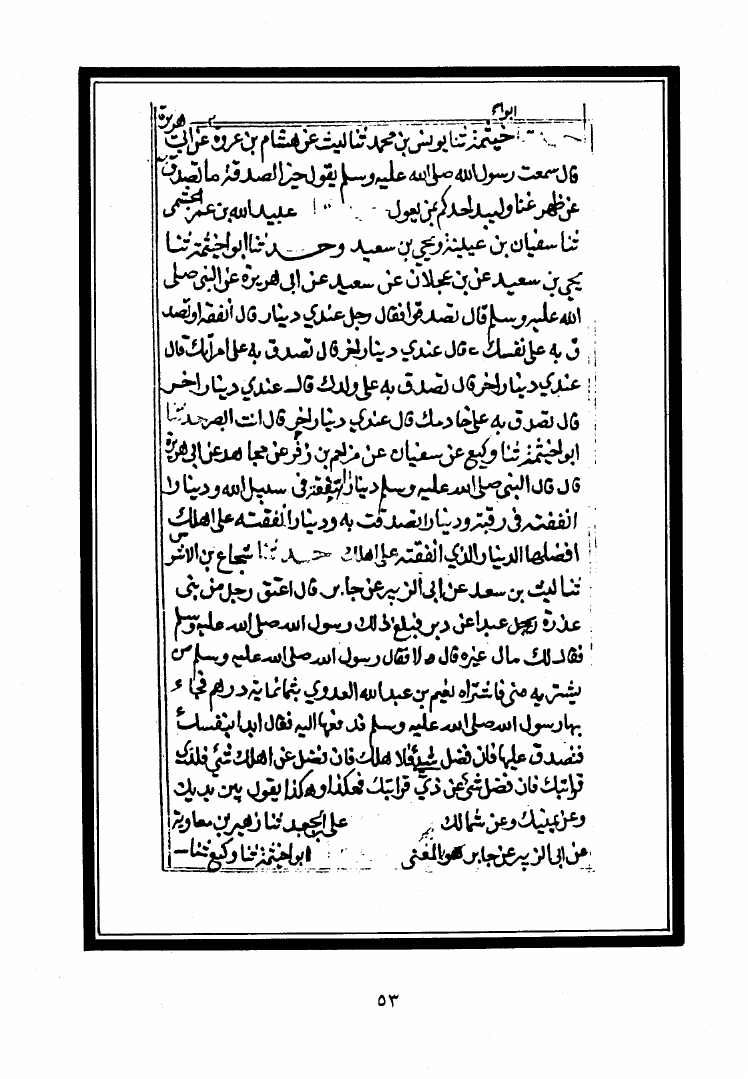 ابواب
خيثمة ثنا يونس بن محمد ثنا ليث عن هشام بن عروة عن ابي هريرة
قال سمعت رسول الله صلى الله عليه وسلم يقول خير الصدقة ما تصدق
عن ظهر غنا وليبد احدكم بمن يعول عبيد الله بن عمر الجشمى
ثنا سفيان بن عيينة ويحيى بن سعيد وحدثنا ابو خيثمة ثنا
يحيى بن سعيد عن بن عجلان عن سعيد عن ابى هريرة عن النبي صلى
الله عليه وسلم قال تصدقوا فقال رجل عندي دينار قال انفقه او تصد
ق به على نفسك قال عندي دينار اخر قال تصدق به على امرأتك قال
عندي دينار اخر قال تصدق به على ولدك قال عندي دينار اخر
قال تصدق به على خادمك قال عندي دينار اخر قال انت ابصر حدثنا
ابو خيثمة ثنا وكيع عن سفيان عن مزاحم بن زفر عن مجاهد عن ابى هريرة
قال قال النبي صلى الله عليه وسلم دينارا انفقته فى سبيل الله ودينارا
انفقته فى رقبة ودينارا تصدقت به ودينارا انفقته على اهلك
افضلها الدينار الذي انفقته على اهلك حدثنا شجاع بن الاشرس
ثنا ليث بن سعد عن ابى الزبير عن جابر قال اعتق رجل من بنى
عذرة رجل عبدا عن دبر فبلغ ذلك رسول الله صلى الله عليه وسلم
فقال لك مال غيره قال لا فقال رسول الله صلى الله عليه وسلم من
يشتريه منى فاشتراه نعيم بن عبد الله العدوي بثمانماية درهم فجاء
بها رسول الله صلى الله عليه وسلم فدفعها اليه فقال ابدا بنفسك
فتصدق عليها فان فضل شئ فلاهلك فان فضل عن اهلك شئ فلذى
قرابتك فان فضل شئ عن ذي قرابتك فهكذا وهكذا يقول بين يديك
وعن يمينك وعن شمالك على بن الجعد ثنا زهير بن معاوية
عن ابى الزبير عن جابر نحو المعنى ابو خيثمة ثنا وكيع ثنا
٥٣